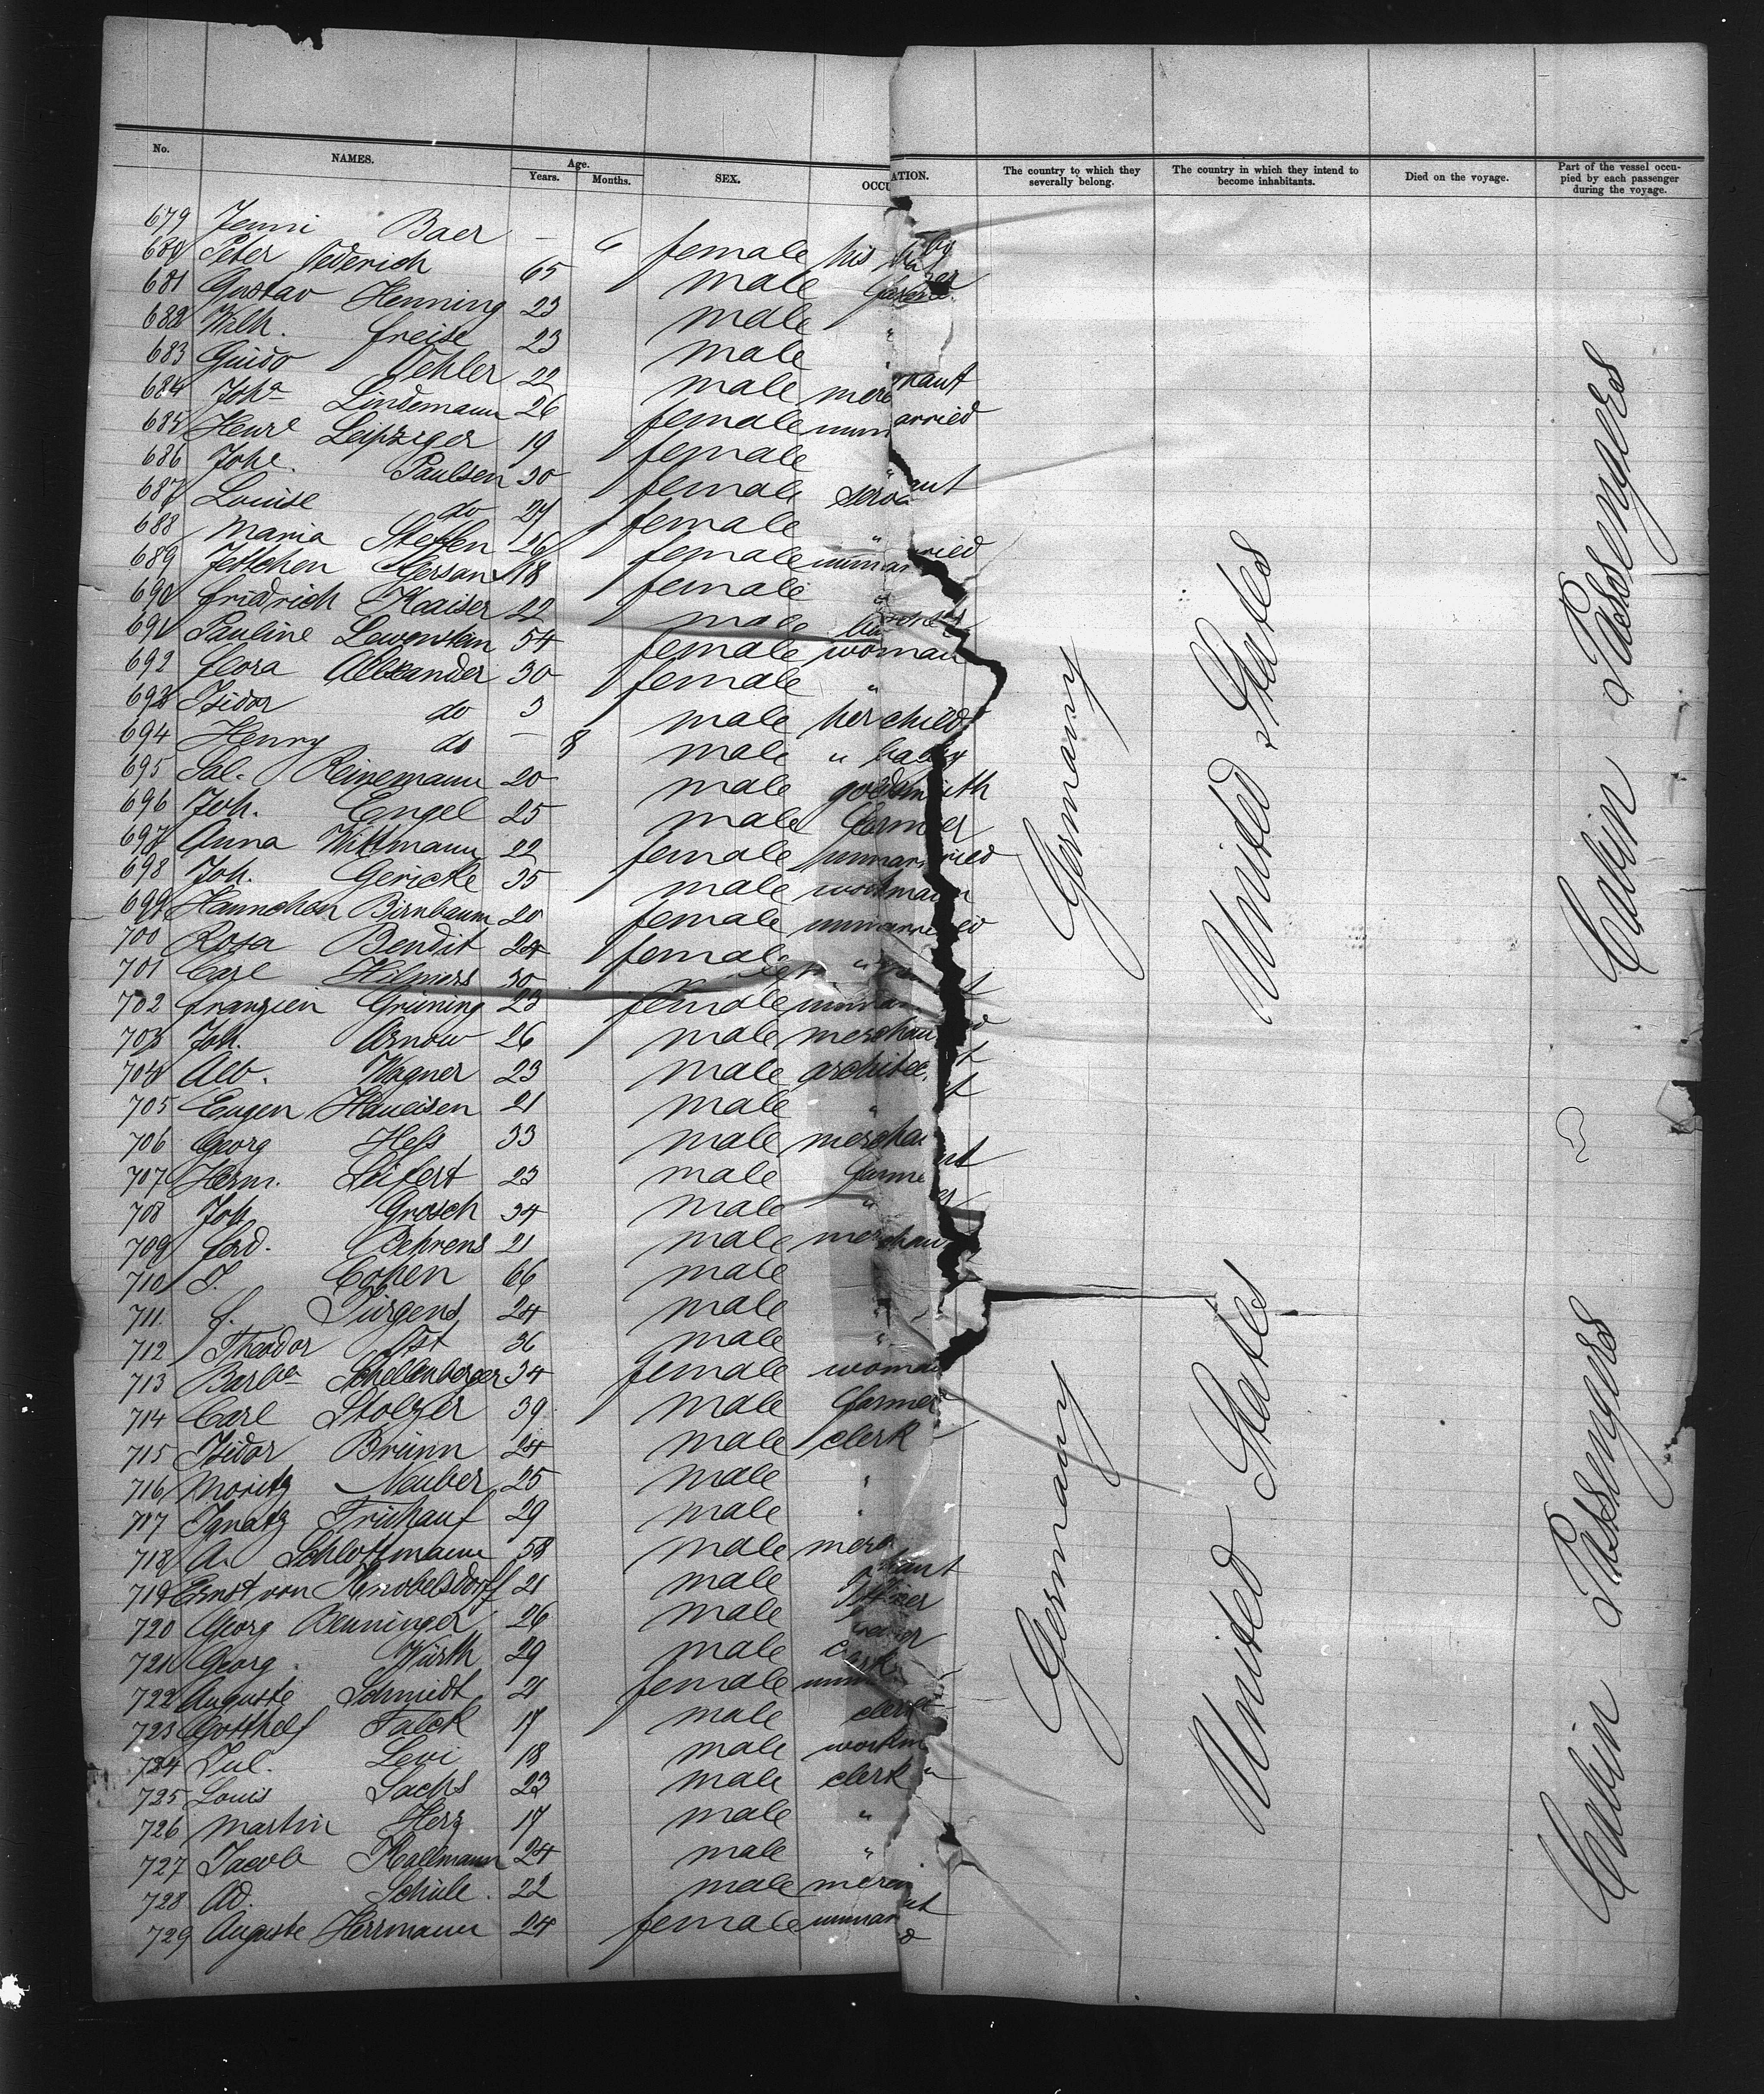 No. NAMES. Age. Years. Months. SEX. OCCUPATION. The country to which they severally belong. The country in which they intend to become inhabitants. Died on the voyage. Part of the vessel occupied by each passenger during the voyage.
679 Jenni Baer - 6 female his baby
680 Peter Dederich 65 male
681 Gustav Henning 23 male "
682 Wilh. Freise 23 male "
683 Guido Oehler 22 male merchant
684 Joha Lindemann 26 female unmarried
685 Henre Leipziger 19 female "
686 Johe. Paulsen 30 female servant
687 Louise do 27 female "
688 Maria Steffen 26 female unmarried
689 Jettchen Gerson 18 female "
690 Friedrich Kaiser 22 male
691 Pauline Lewenstein 54 female woman
692 Flora Allexander 30 female "
693 Isidor do 3 male her child
694 Henry do - 8 male " baby
695 Sal. Reinemann 20 male goldsmith
696 Joh. Engel 25 male farmer
697 Anna Wittmann 22 female unmarried
698 Joh. Gericke 35 male workmann
699 Hannchen Birnbaum 20 female unmarried
700 Rosa Bendit 24 female "
701 Carl Hilmers 30
702 Franzien Grüning 23 female unmarried
703 Joh. Arnow 26 male merchant
704 Alb. Wagner 23 male architect
705 Eugen Haueisen 21 male "
706 Georg Hess 33 male merchant
707 Herm. Seifert 23 male farmer
708 Joh. Grosch 34 male "
709 Ferd. Behrens 21 male merchant
710 S. Cohen 66 male
711. F. Jürgens 24 male "
712 Theodor Ost 36 male "
713 Barba Schellenberger 34 female woman
714 Carl Stolzer 39 male farmer
715 Isidor Brünn 24 male clerk
716 Moritz Neuber 25 male "
717 Ignatz Frühauf 29 male "
718 A. Schlottmann 58 male merchant
719 Ernst von Knobelsdorff 21 male officer
720 Georg Benninger 26 male
721 Georg Würth 29 male
722 Auguste Schmidt 21 female
723 Gotthelf Falck 17 male clerk
724 Jul. Levi 18 male
725 Louis Sachs 23 male clerk
726 Martin Herz 17 male "
727 Jacob Kallmann 24 male "
728 Ad. Schüle. 22 male merchant
729 Auguste Herrmann 24 female unmarried
Germany United States Cabin Passengers
Germany United States Cabin Passengers